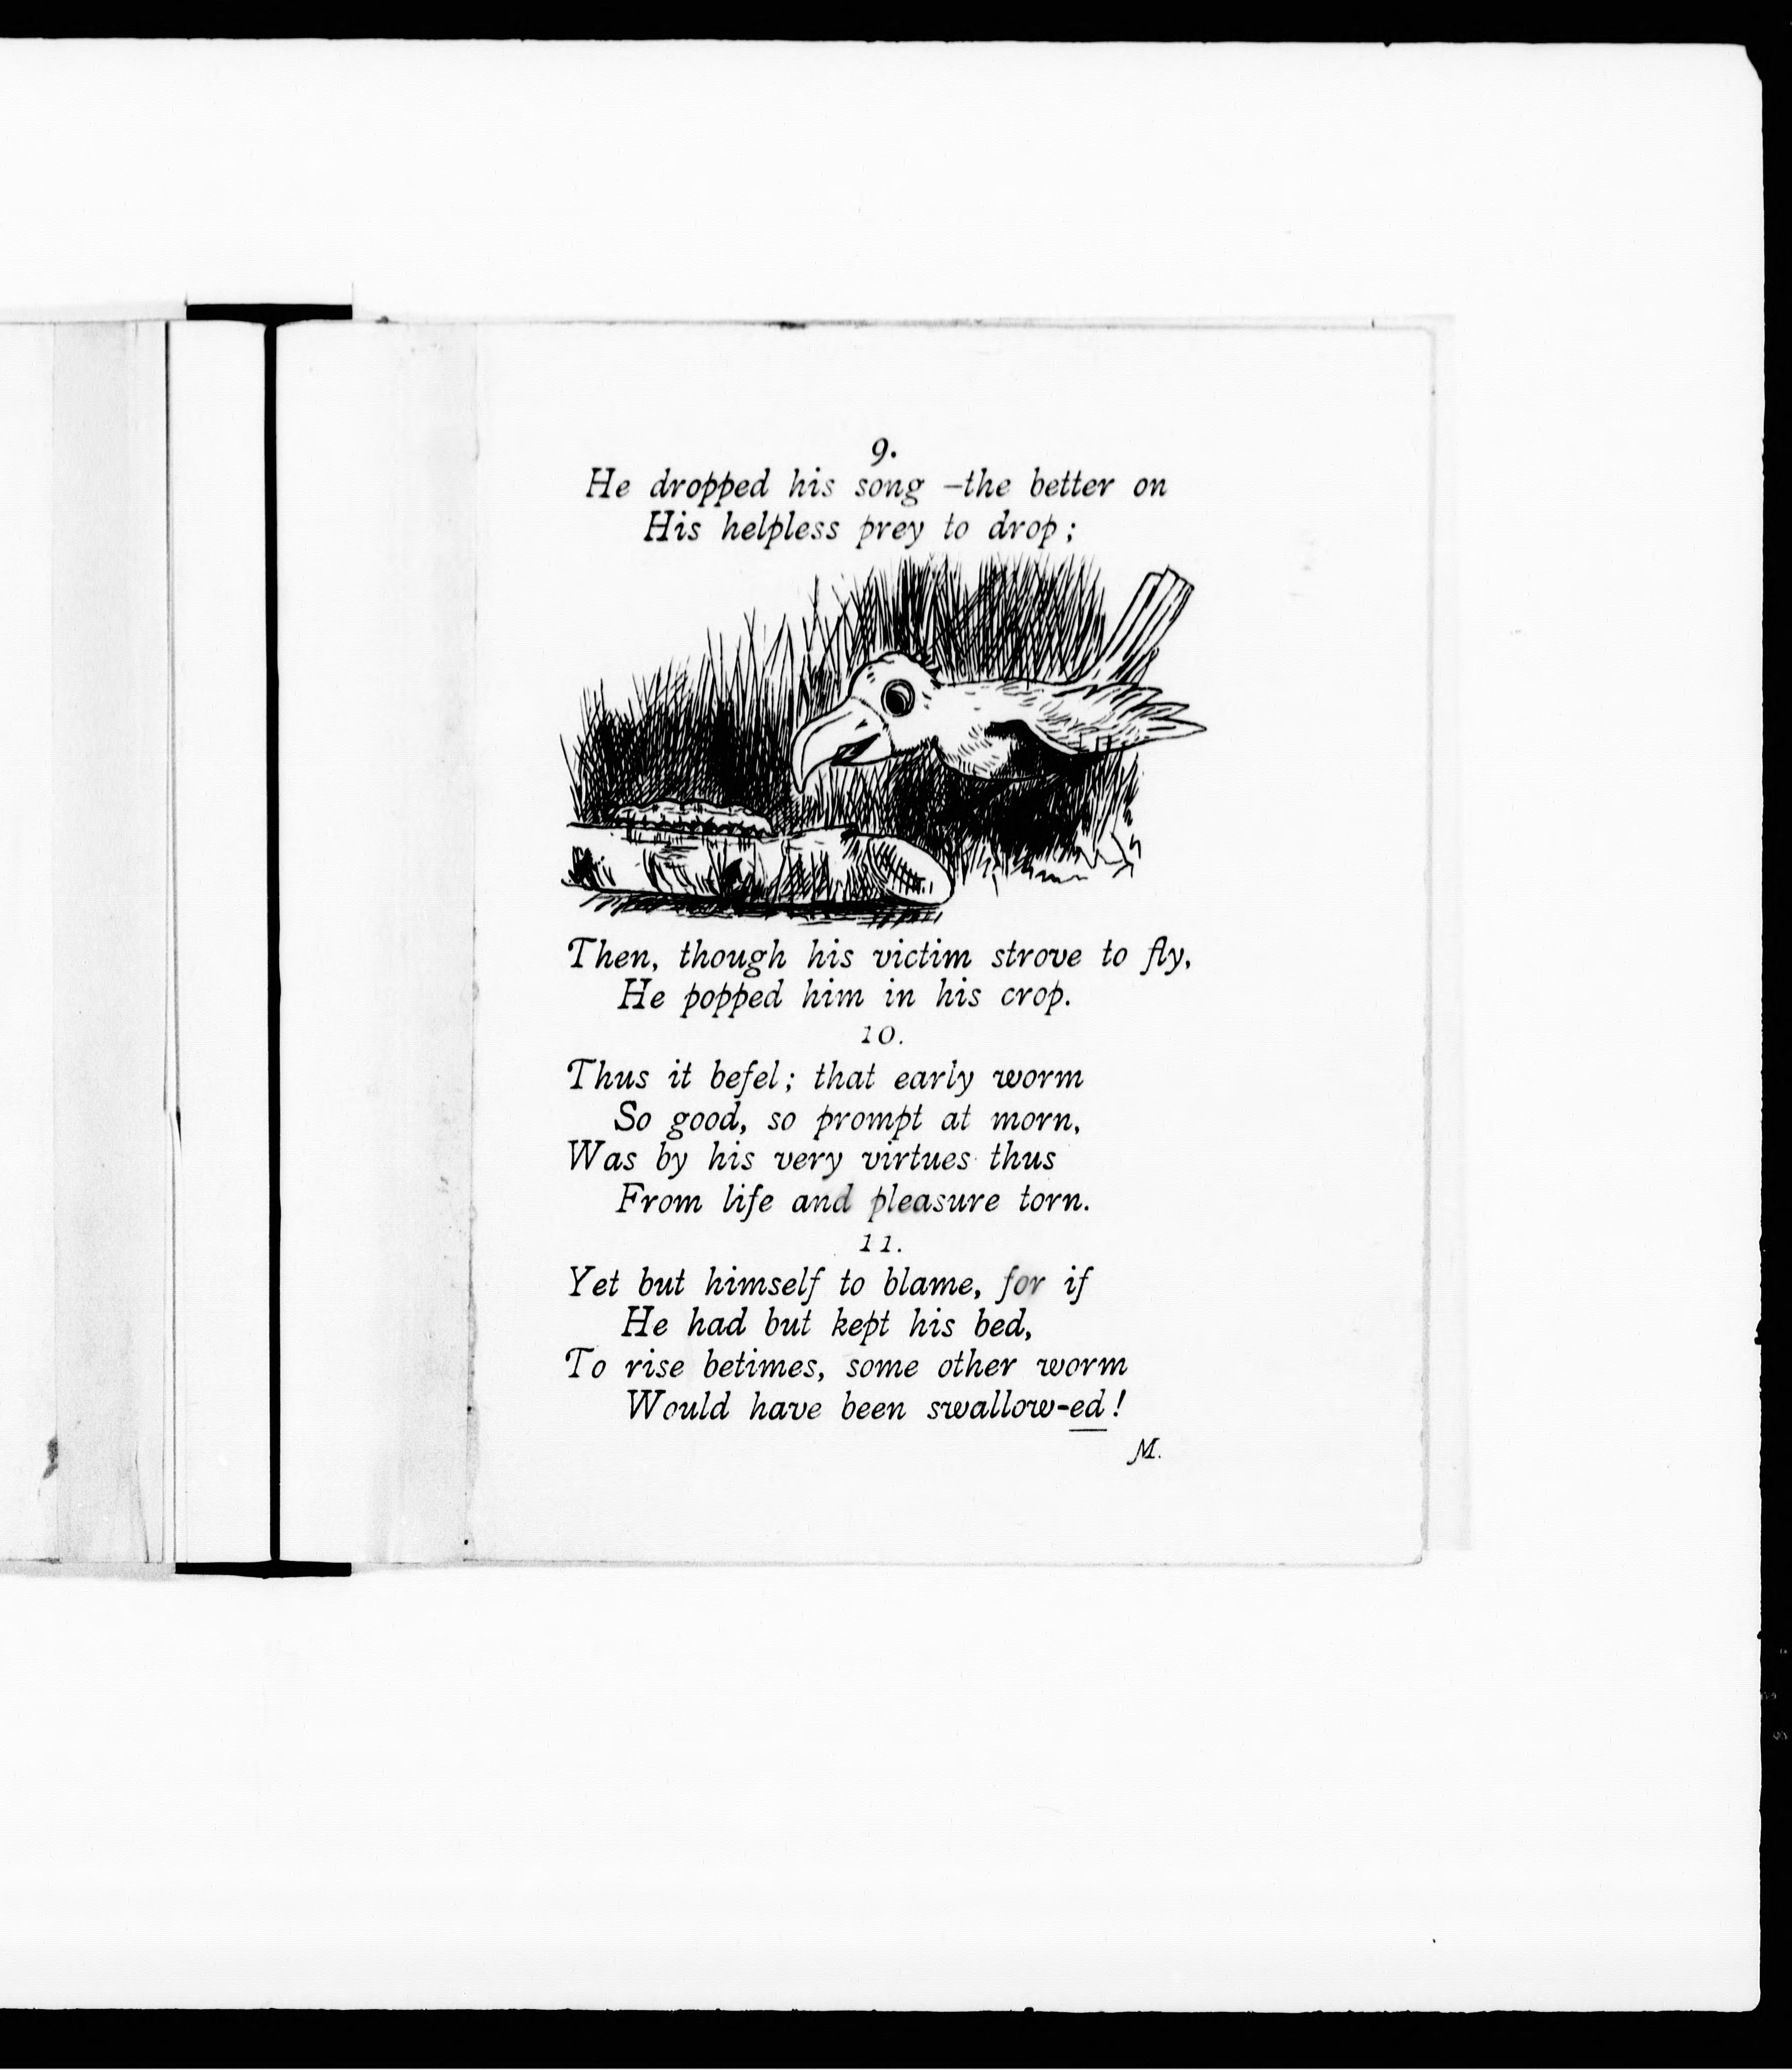 9.
He dropped his song —the better on
His helpless prey to drop;
Then, though his victim strove to fly,
He popped him in his crop.
10.
Thus it befel; that early worm
So good, so prompt at morn,
Was by his very virtues thus
From life and pleasure torn.
11.
Yet but himself to blame, for if
He had but kept his bed,
To rise betimes, some other worm
Would have been swallow-ed!
M.